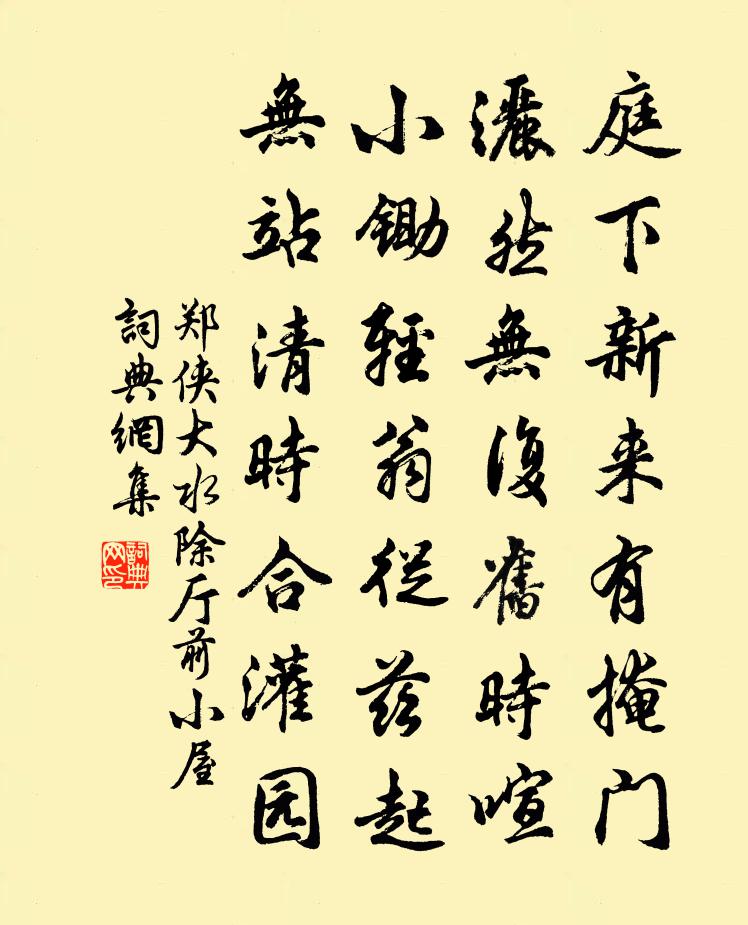 庭下新来有掩门
灑然無復舊時喧
小鋤輕翁從茲起
無站清時合灌园
郑侠大水除厅前小屋
詞典網集
詞典网印